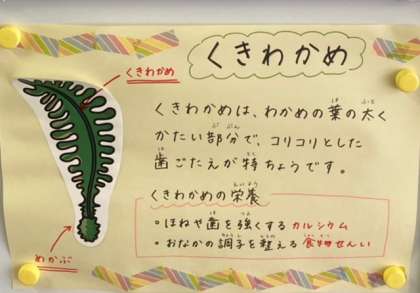 くきわかめ
くきわかめ
くきわかめは、わかめの葉の太く
かたい部分で、コリコリとした
歯ごたえが特ちょうです。
くきわかめの栄養
・ほねや歯を強くするカルシウム
・おなかの調子を整える食物せんい
めかぶ